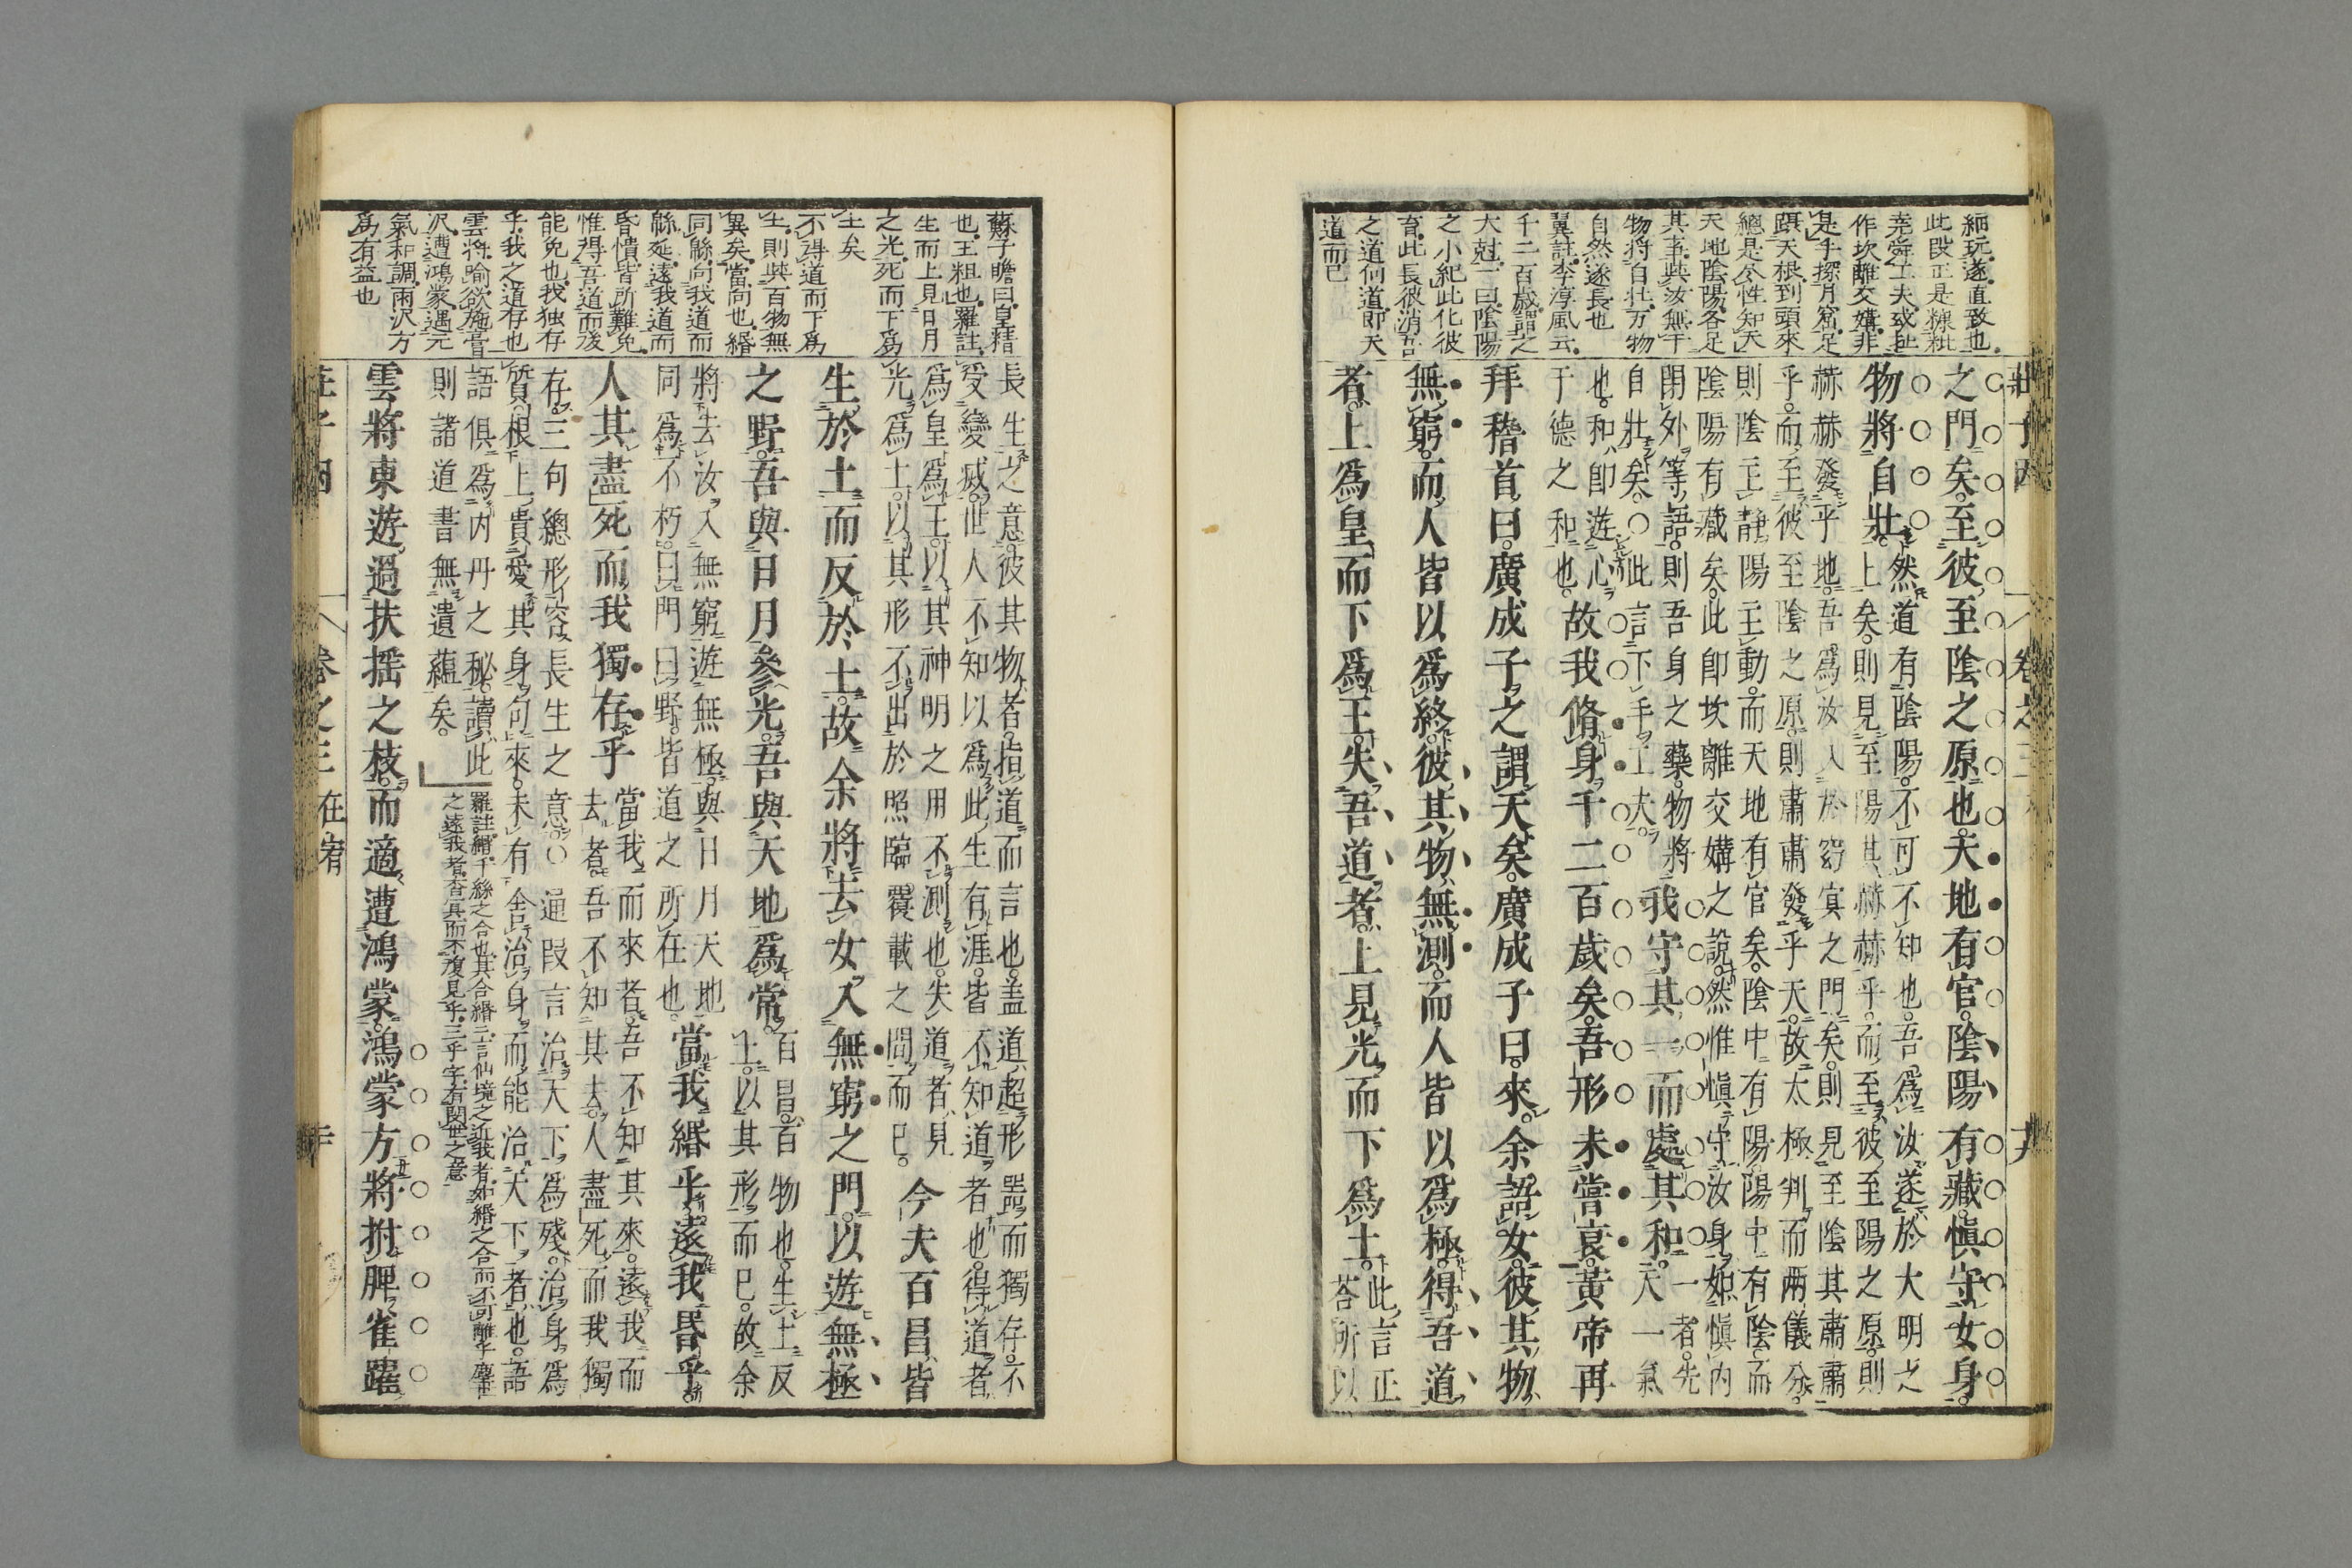 細玩遂直致也
此段正是糠粃
堯舜工夫或扯
作坎離交媾非
是手探月窟足
躡天根到頭來
總是公性知天
天地陰陽各足
其事與汝無干
物將自壯万物
自然遂長也
翼註李淳風云
千二百歲謂之
大尅一曰陰陽
之小紀此化彼
育此長彼消吾
之道何道即天
道而已
之門矣至彼至陰之原也天地有官陰陽有藏慎守女身
物將自壯
然道有陰陽不可不知也吾爲汝遂於大明之
上矣則見至陽其赫赫乎而至彼至陽之原則
赫赫發乎地吾爲汝入於窈冥之門矣則見至陰其肅肅
乎而至彼至陰之原則肅肅發乎天故太極判而兩儀分
則陰主靜陽主動而天地有官矣陰中有陽陽中有陰而
陰陽有藏矣此即坎離交媾之說然惟慎守汝身如慎內
閉外等語則吾身之藥物將
自壯矣○此言下手工夫
我守其一而處其和
一者先
天一氣
也和即遊心
于德之和也
故我脩身千二百歲矣吾形未嘗衰黃帝再
拜稽首曰廣成子之謂天矣廣成子曰來余語女彼其物
無窮而人皆以爲終彼其物無測而人皆以爲極得吾道
者上爲皇而下爲王失吾道者上見光而下爲土
此言正
荅所以
莊子因
卷之三
蘇子瞻曰皇精
也王粗也羅註
生而上見日月
之光死而下爲
土矣
不得道而下爲
土則與百物無
異矣當向也緡
同緜向我道而
緜延遠我道而
昏憒皆所難免
惟得吾道而後
能免也我独存
乎我之道存也
雲將喻欲施膏
沢遭鴻蒙遇元
氣和調雨沢方
爲有益也
長生之意彼其物者指道而言也盖道超形噐而獨存不
受變滅世人不知以爲此生有涯皆不知道者也得道者
爲皇爲王以其神明之用不測也失道者見
光爲土以其形不出於照臨覆載之間而已
今夫百昌皆
生於土而反於土故余將去女入無窮之門以遊無極
之野吾與日月參光吾與天地爲常
百昌百物也生土反
土以其形而已故余
將去汝入無窮遊無極與日月天地
同爲不朽曰門曰野皆道之所在也
當我緡乎遠我昬乎
人其盡死而我獨存乎
當我而來者吾不知其來遠我而
去者吾不知其去人盡死而我獨
存三句總形容長生之意○通段言治天下爲殘治身爲
質根上貴愛其身句來未有舍治身而能治天下者也語
語俱爲內丹之秘讀此
則諸道書無遺蘊矣
羅註緡千絲之合也其合緡二言仙境之近我者如緡之合而不可離乎塵世
之遠我者杳冥而不復見乎三乎字有閔世之意
雲將東遊過扶搖之枝而適遭鴻蒙鴻蒙方將拊脾雀躍
卷之三 在宥